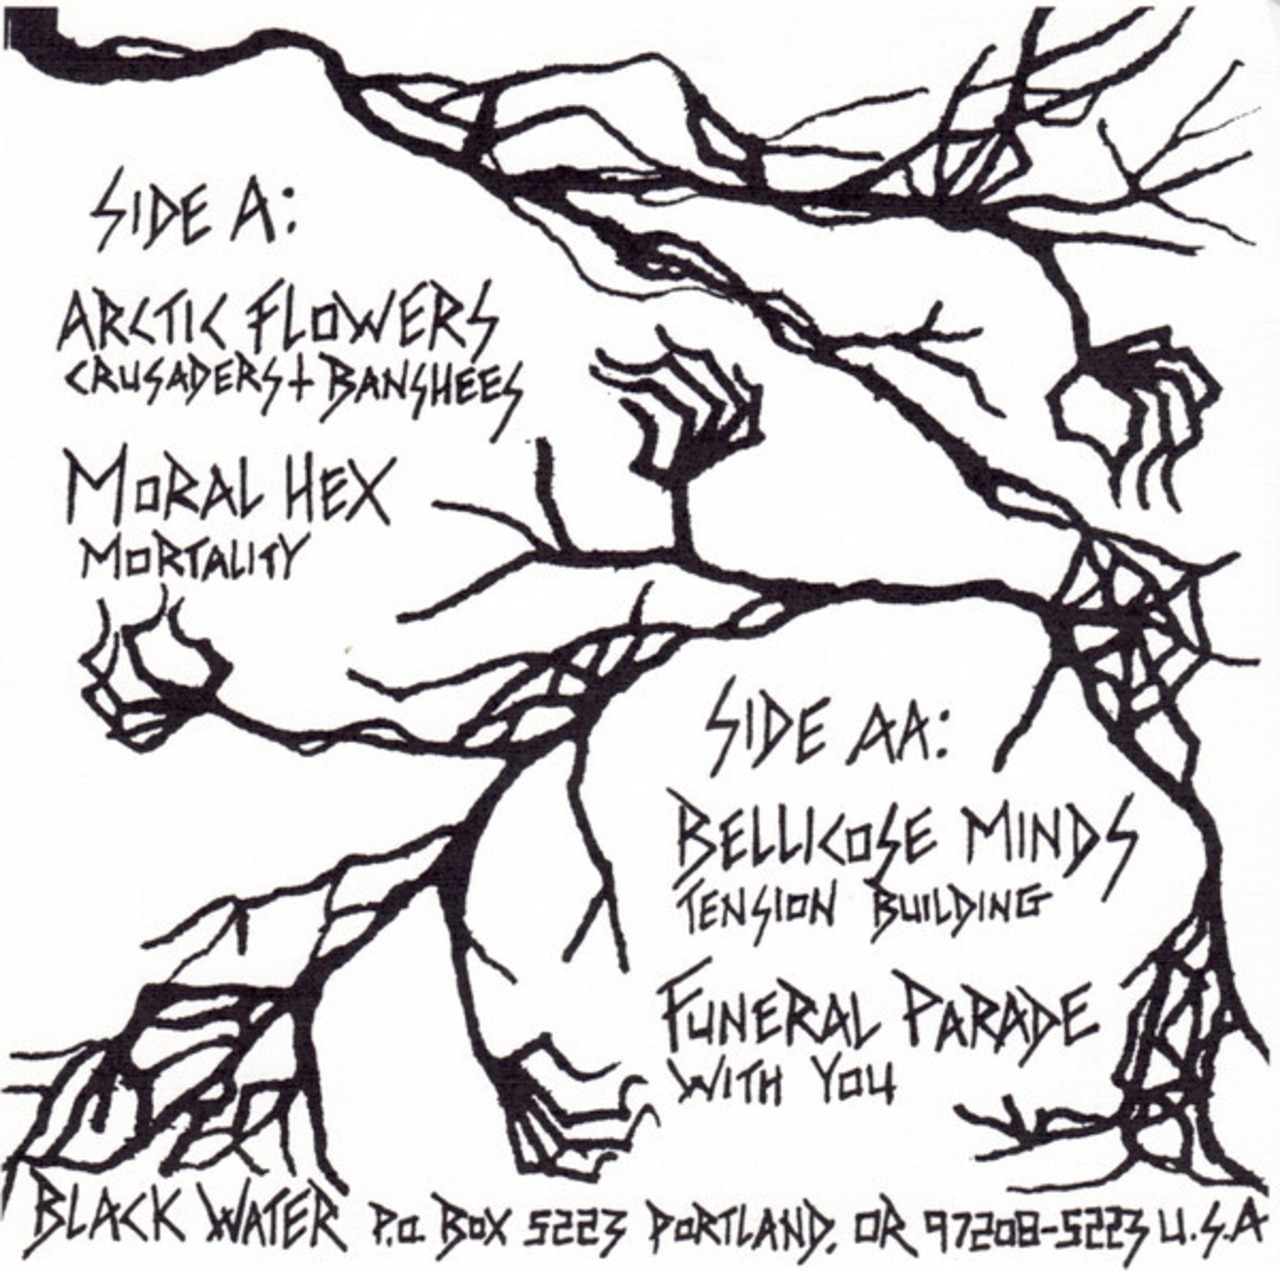 SIDE A:
ARCTIC FLOWERS
CRUSADERS + BANSHEES
MORAL HEX
MORTALITY
SIDE AA:
BELLICOSE MINDS
TENSION BUILDING
FUNERAL PARADE
WITH YOU
BLACK WATER P.O. BOX 5223 PORTLAND, OR 97208-5223 U.S.A